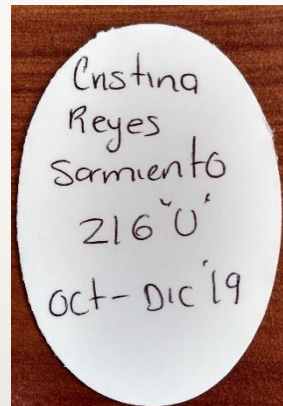 Cristina
Reyes
Sarmiento
216 "U"
Oct - Dic '19